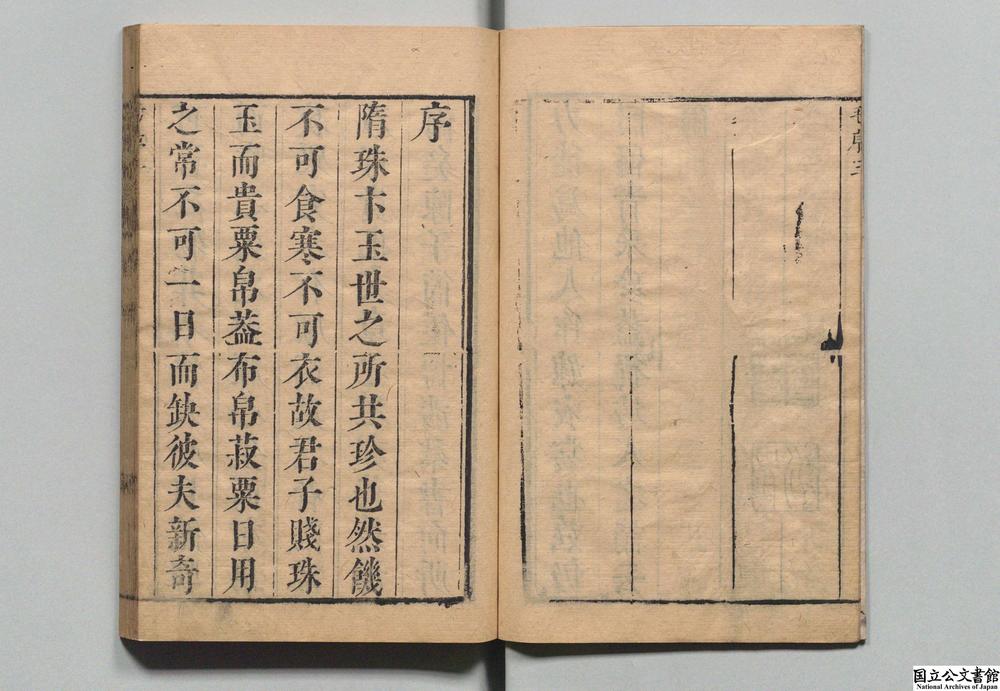 序
隋珠卞玉世之所共珍也然饑
不可食寒不可衣故君子賤珠
玉而貴粟帛葢布帛菽粟日用
之常不可一日而缺彼夫新奇
国立公文書館
National Archives of Japan